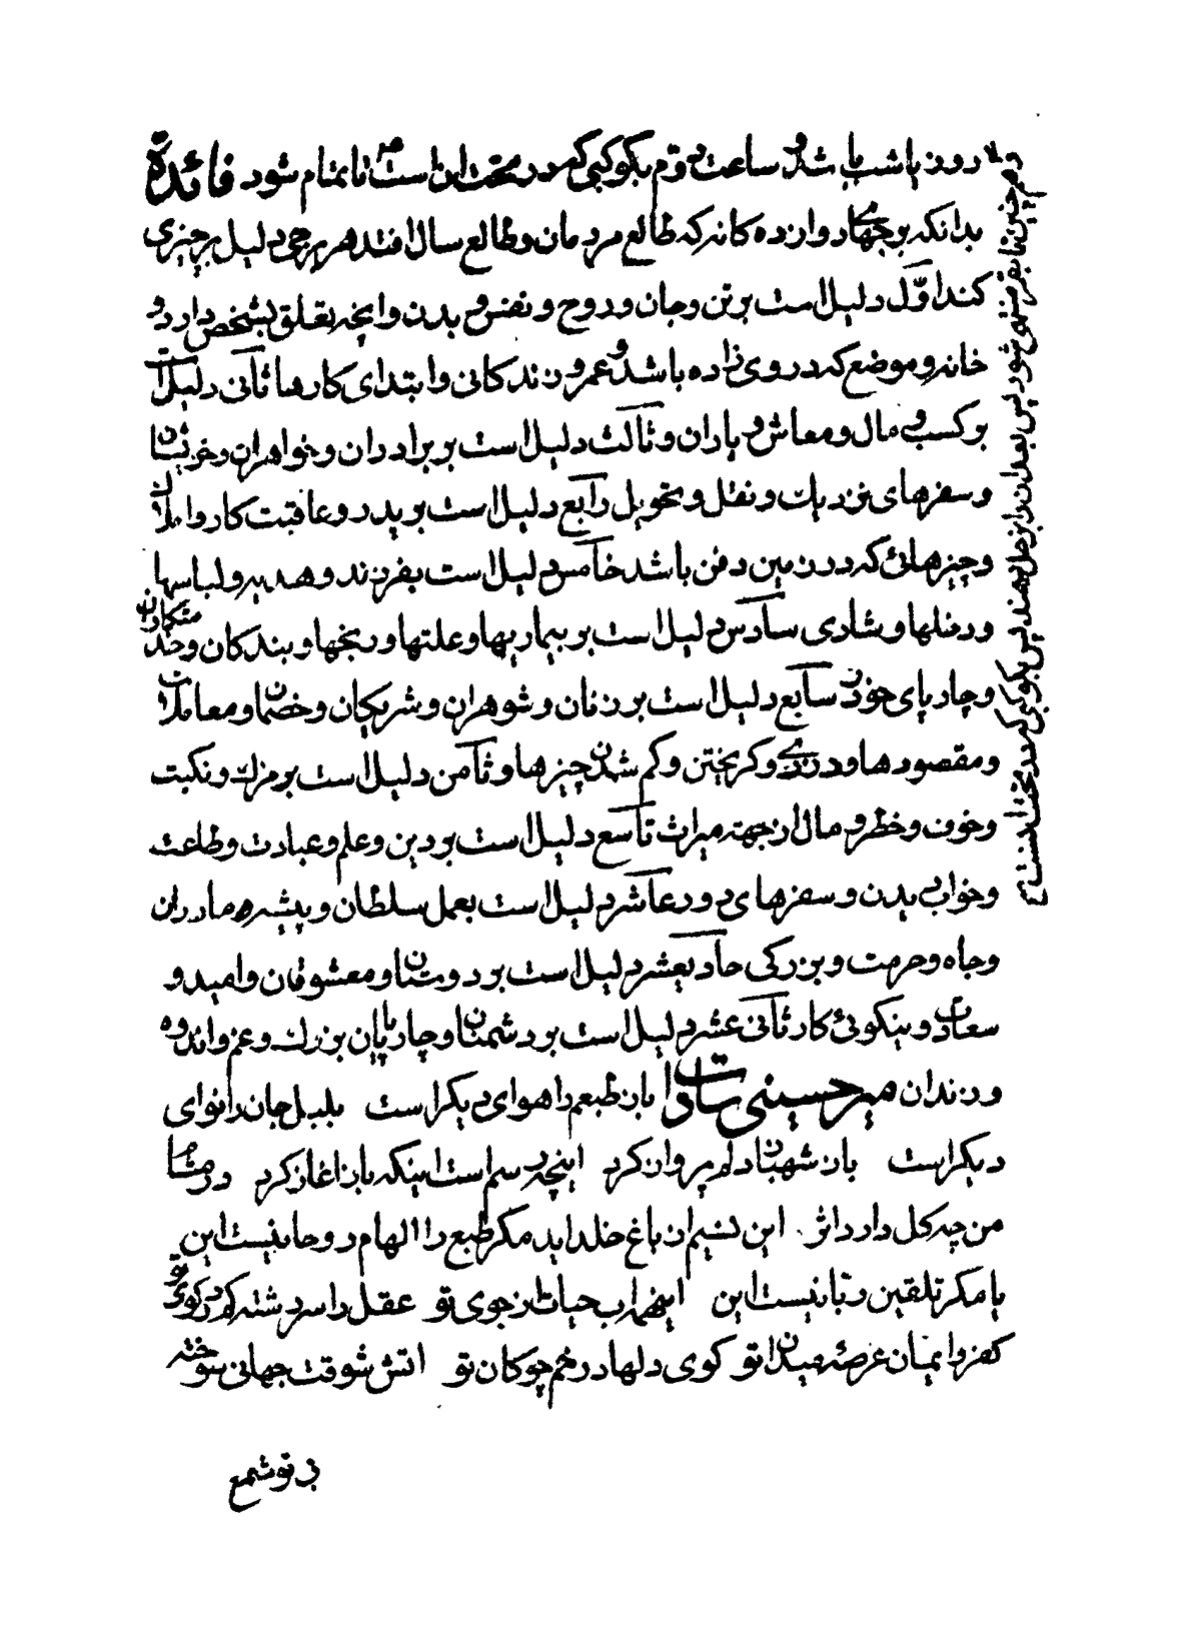 روز یا شب باشد و ساعت دوّم بکوکبی که در تحت اوست تا تمام شود فائدة
بدانکه برجهای دوازده کانه که طالع مردمان و طالع سال افتد هر برجی دلیل بر چیزی
کند اوّل دلیل است بر تن و جان و روح و نفس و بدن وانچه تعلق بشخص دارد و
خانه و موضع که در وی زاده باشد و عمر و زندکانی و ابتدای کارها ثانی دلیل است
بر کسب و مال و معاش و یاران و ثالث دلیل است بر برادران و خواهران و خویشان
و سفرهای نزدیک و نقل و تحویل رابع دلیل است بر پدر و عاقبت کار و املاک
و چیزهائی که در زمین دفن باشد خامس دلیل است بفرزند و هدیه و لباسها
و رسلها و شادی سادس دلیل است بر بیماریها و علتها و رنجها و بندکان و خدمتکاران
و چارپای خورد سابع دلیل است بر زنان و شوهران و شریکان و خصمان و معاملان
و مقصودها و دزدی و کریختن و کم شدن چیزها و ثامن دلیل است بر مرک و نکبت
و خوف و خطر و مال از جهة میراث تاسع دلیل است بر دین و علم و عبادت و طاعت
و خواب دیدن و سفرهای دور عاشر دلیل است بعمل سلطان و پیشه مادران
و جاه و حرمت و بزرکی حادیعشر دلیل است بر دوستان و معشوقان و امید و
سعادت و نیکوئی کار ثانی عشر دلیل است بر دشمنان و چارپایان بزرک و غم و اندوه
و زندان میر حسینی سادات باز طبعم را هوای دیکر است بلبل جان را نوای
دیکر است باز شهباز دلم پرواز کرد اینچه رسم است اینکه باز اغاز کرد در مشام
من چه کل دارد اثر این نسیم از باغ خلد اید مکر طبع را الهام روحانیست این
یا مکر تلقین ربانیست این اینهمه اب حیات از جوی تو عقل را سررشته کم در کوی تو
کفر و ایمان عرصهٔ میدان تو کوی دلها در خم چوکان تو اتش شوقت جهانی سوخته
بی تو شمع